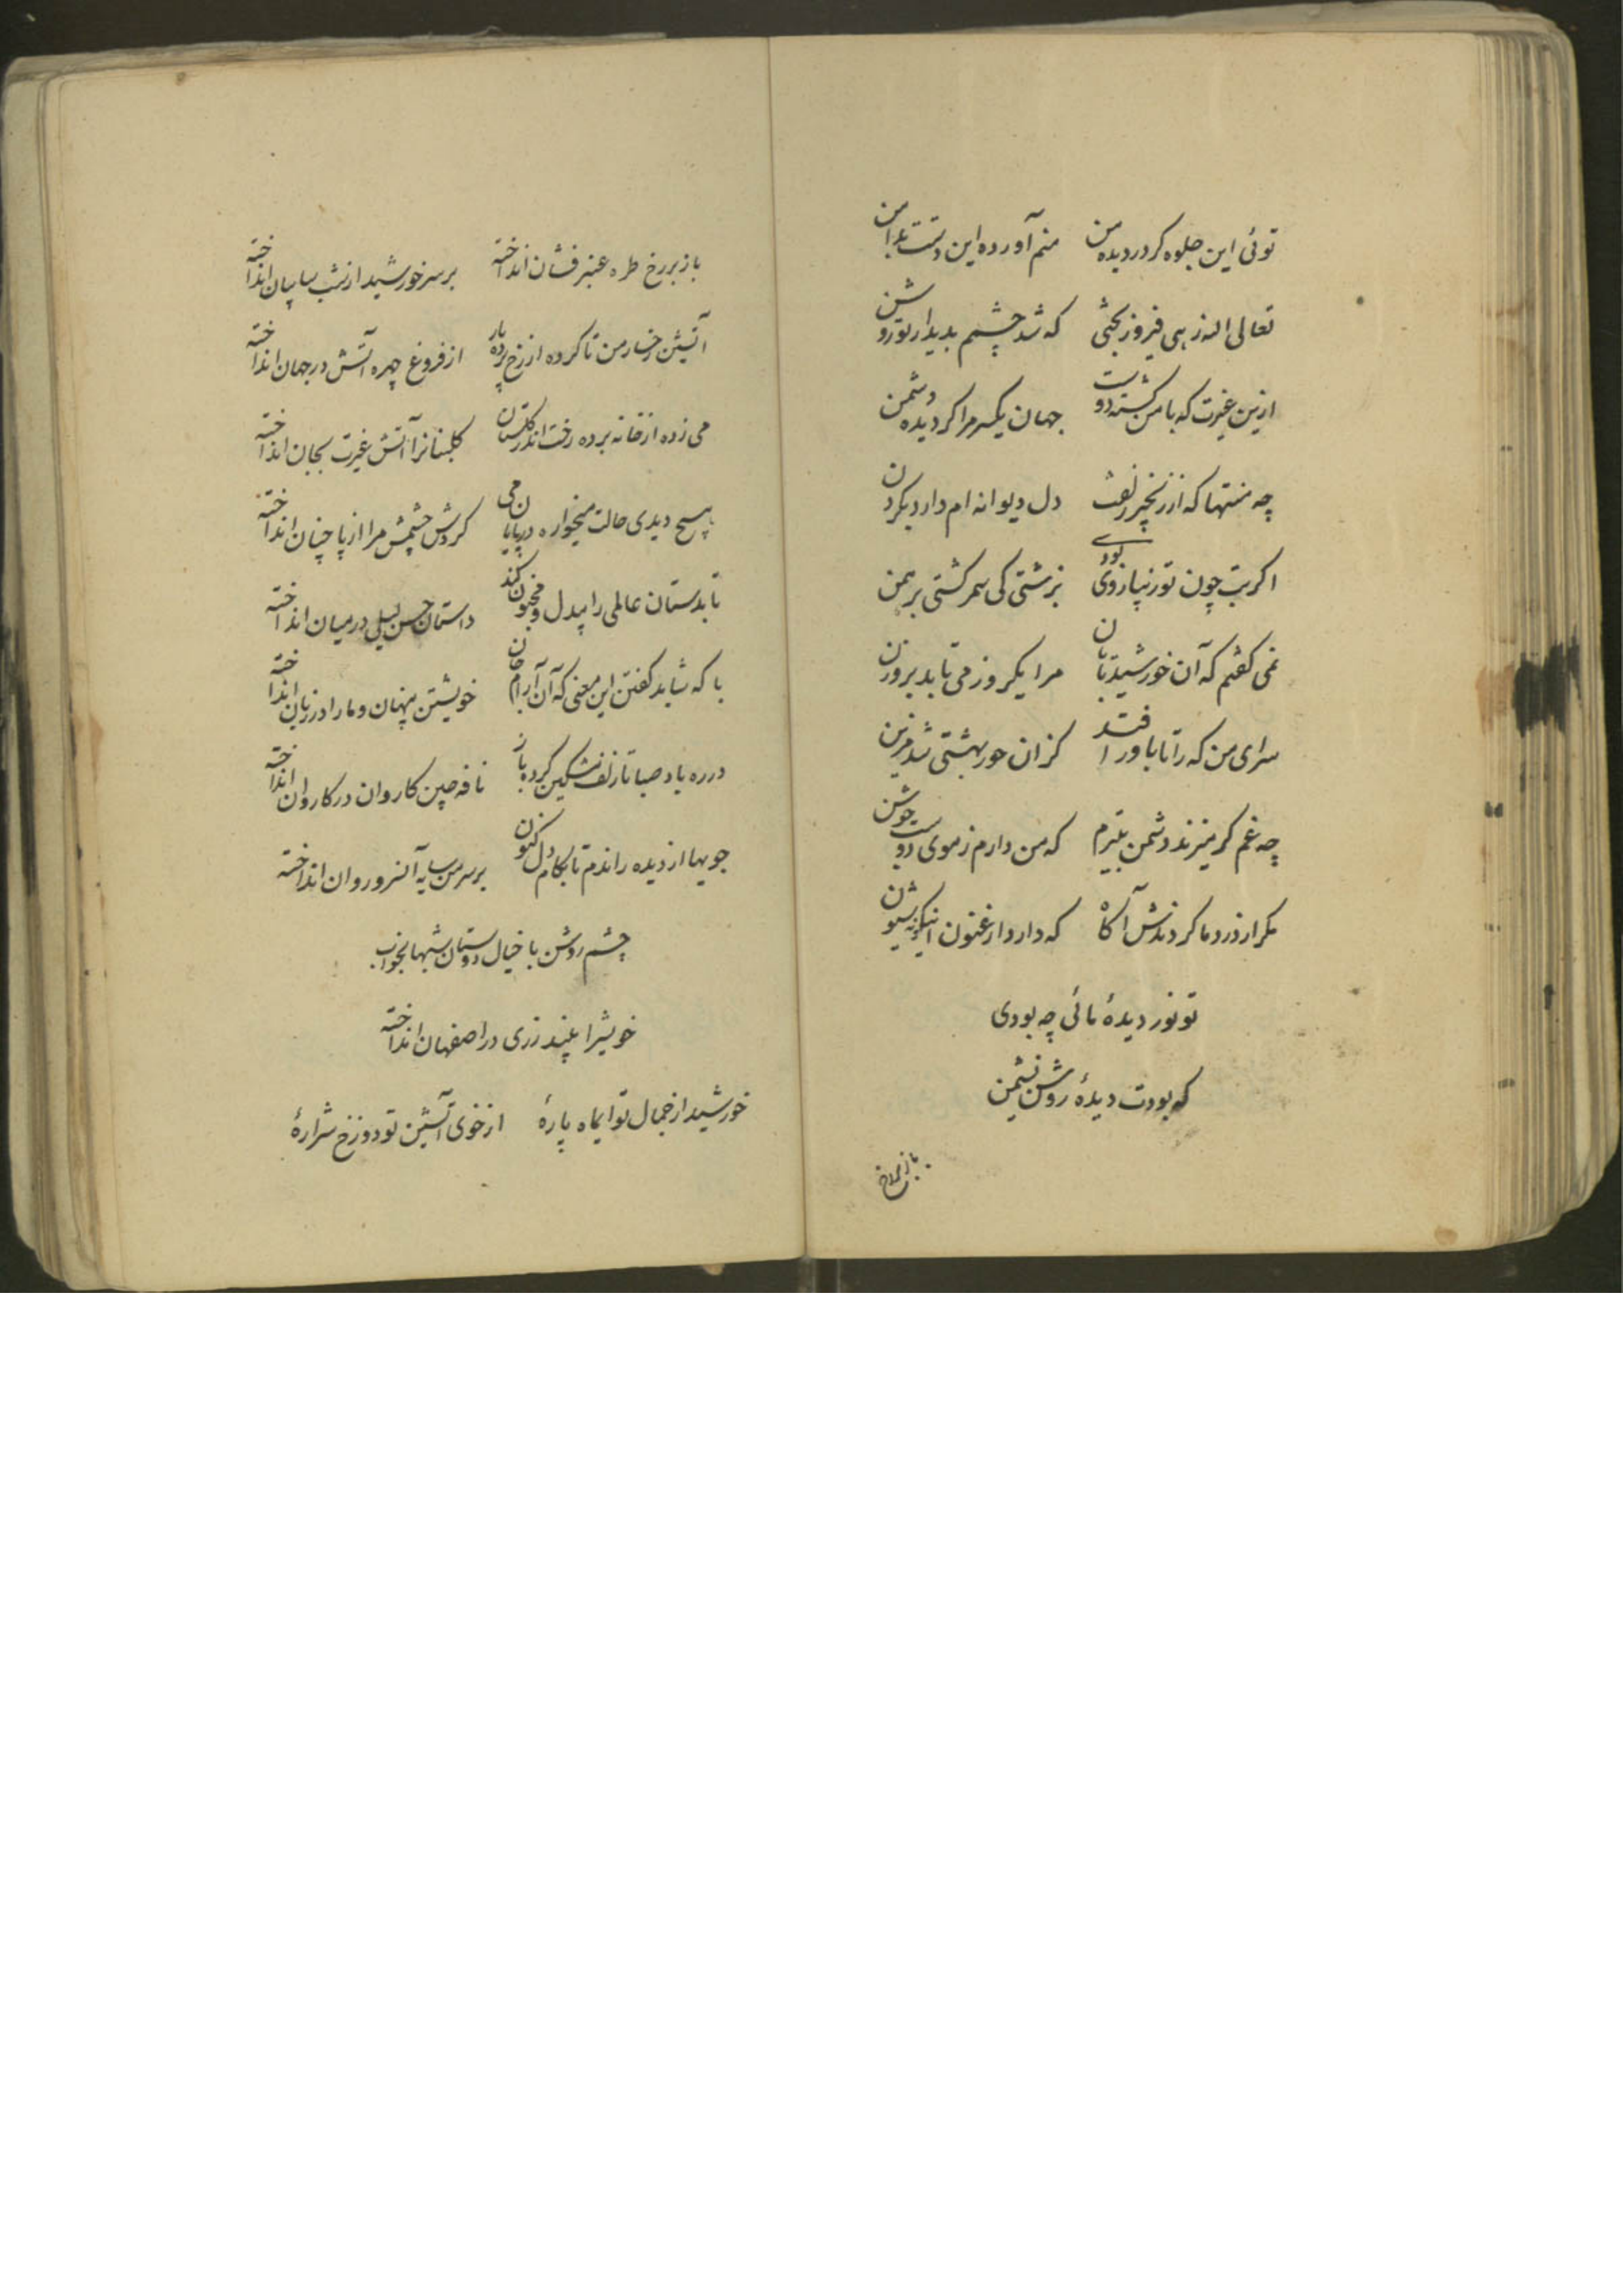 توئی این جلوه کر در دیده من منم آورده این دستت بدامن
تعالی الله زهی فیروز بختی که شد چشمم بدیدار تو روشن
ازین غیرت که با من کشته دوست جهان یکسر مرا کردیده دشمن
چه منتها که از زنجیر زلفت دل دیوانه ام دارد بکردن
اکر بت چون تو زیبا روی بودی بزشتی کی سمر کشتی برهمن
نمی کفتم که آن خورشید تابان مرا یکروز می تابد بروزن
سرای من که را تا باور افتد کزان حور بهشتی شد مزین
چه غم کر میزند دشمن بتیرم که من دارم ز موی دوست جوشن
مکر از درد ما کردندش آکاه که دارد ارغنون اینکونه شیون
تو نور دیدهٔ مائی چه بودی
که بودت دیدهٔ روشن نشیمن
باز بر رخ
باز بر رخ طره عنبر فشان انداخته بر سر خورشید از شب سایبان انداخته
آتشین رخسار من تا کرده از رخ پرده باز از فروغ چهره آتش در جهان انداخته
می زده از خانه برده رخت اندر کلستان کلبنانرا آتش غیرت بجان انداخته
هیچ دیدی حالت میخواره در پایان می کردش چشمش مرا از پا چنان انداخته
تا بدستان عالمی را بیدل و مجنون کند داستان حسن لیلی در میان انداخته
با که شاید کفتن این معنی که آن آرام جان خویشتن پنهان و ما را در زبان انداخته
در ره باد صبا تا زلف مشکین کرد باز نافه چین کاروان در کاروان انداخته
جویها از دیده راندم تا بکام دل کنون بر سر من سایه آنسرو روان انداخته
چشم روشن با خیال دوستان شبها بخواب
خویشرا بیند ز ری در اصفهان انداخته
خورشید از جمال تو ایماه پارهٔ از خوی آتشین تو دوزخ شرارهٔ